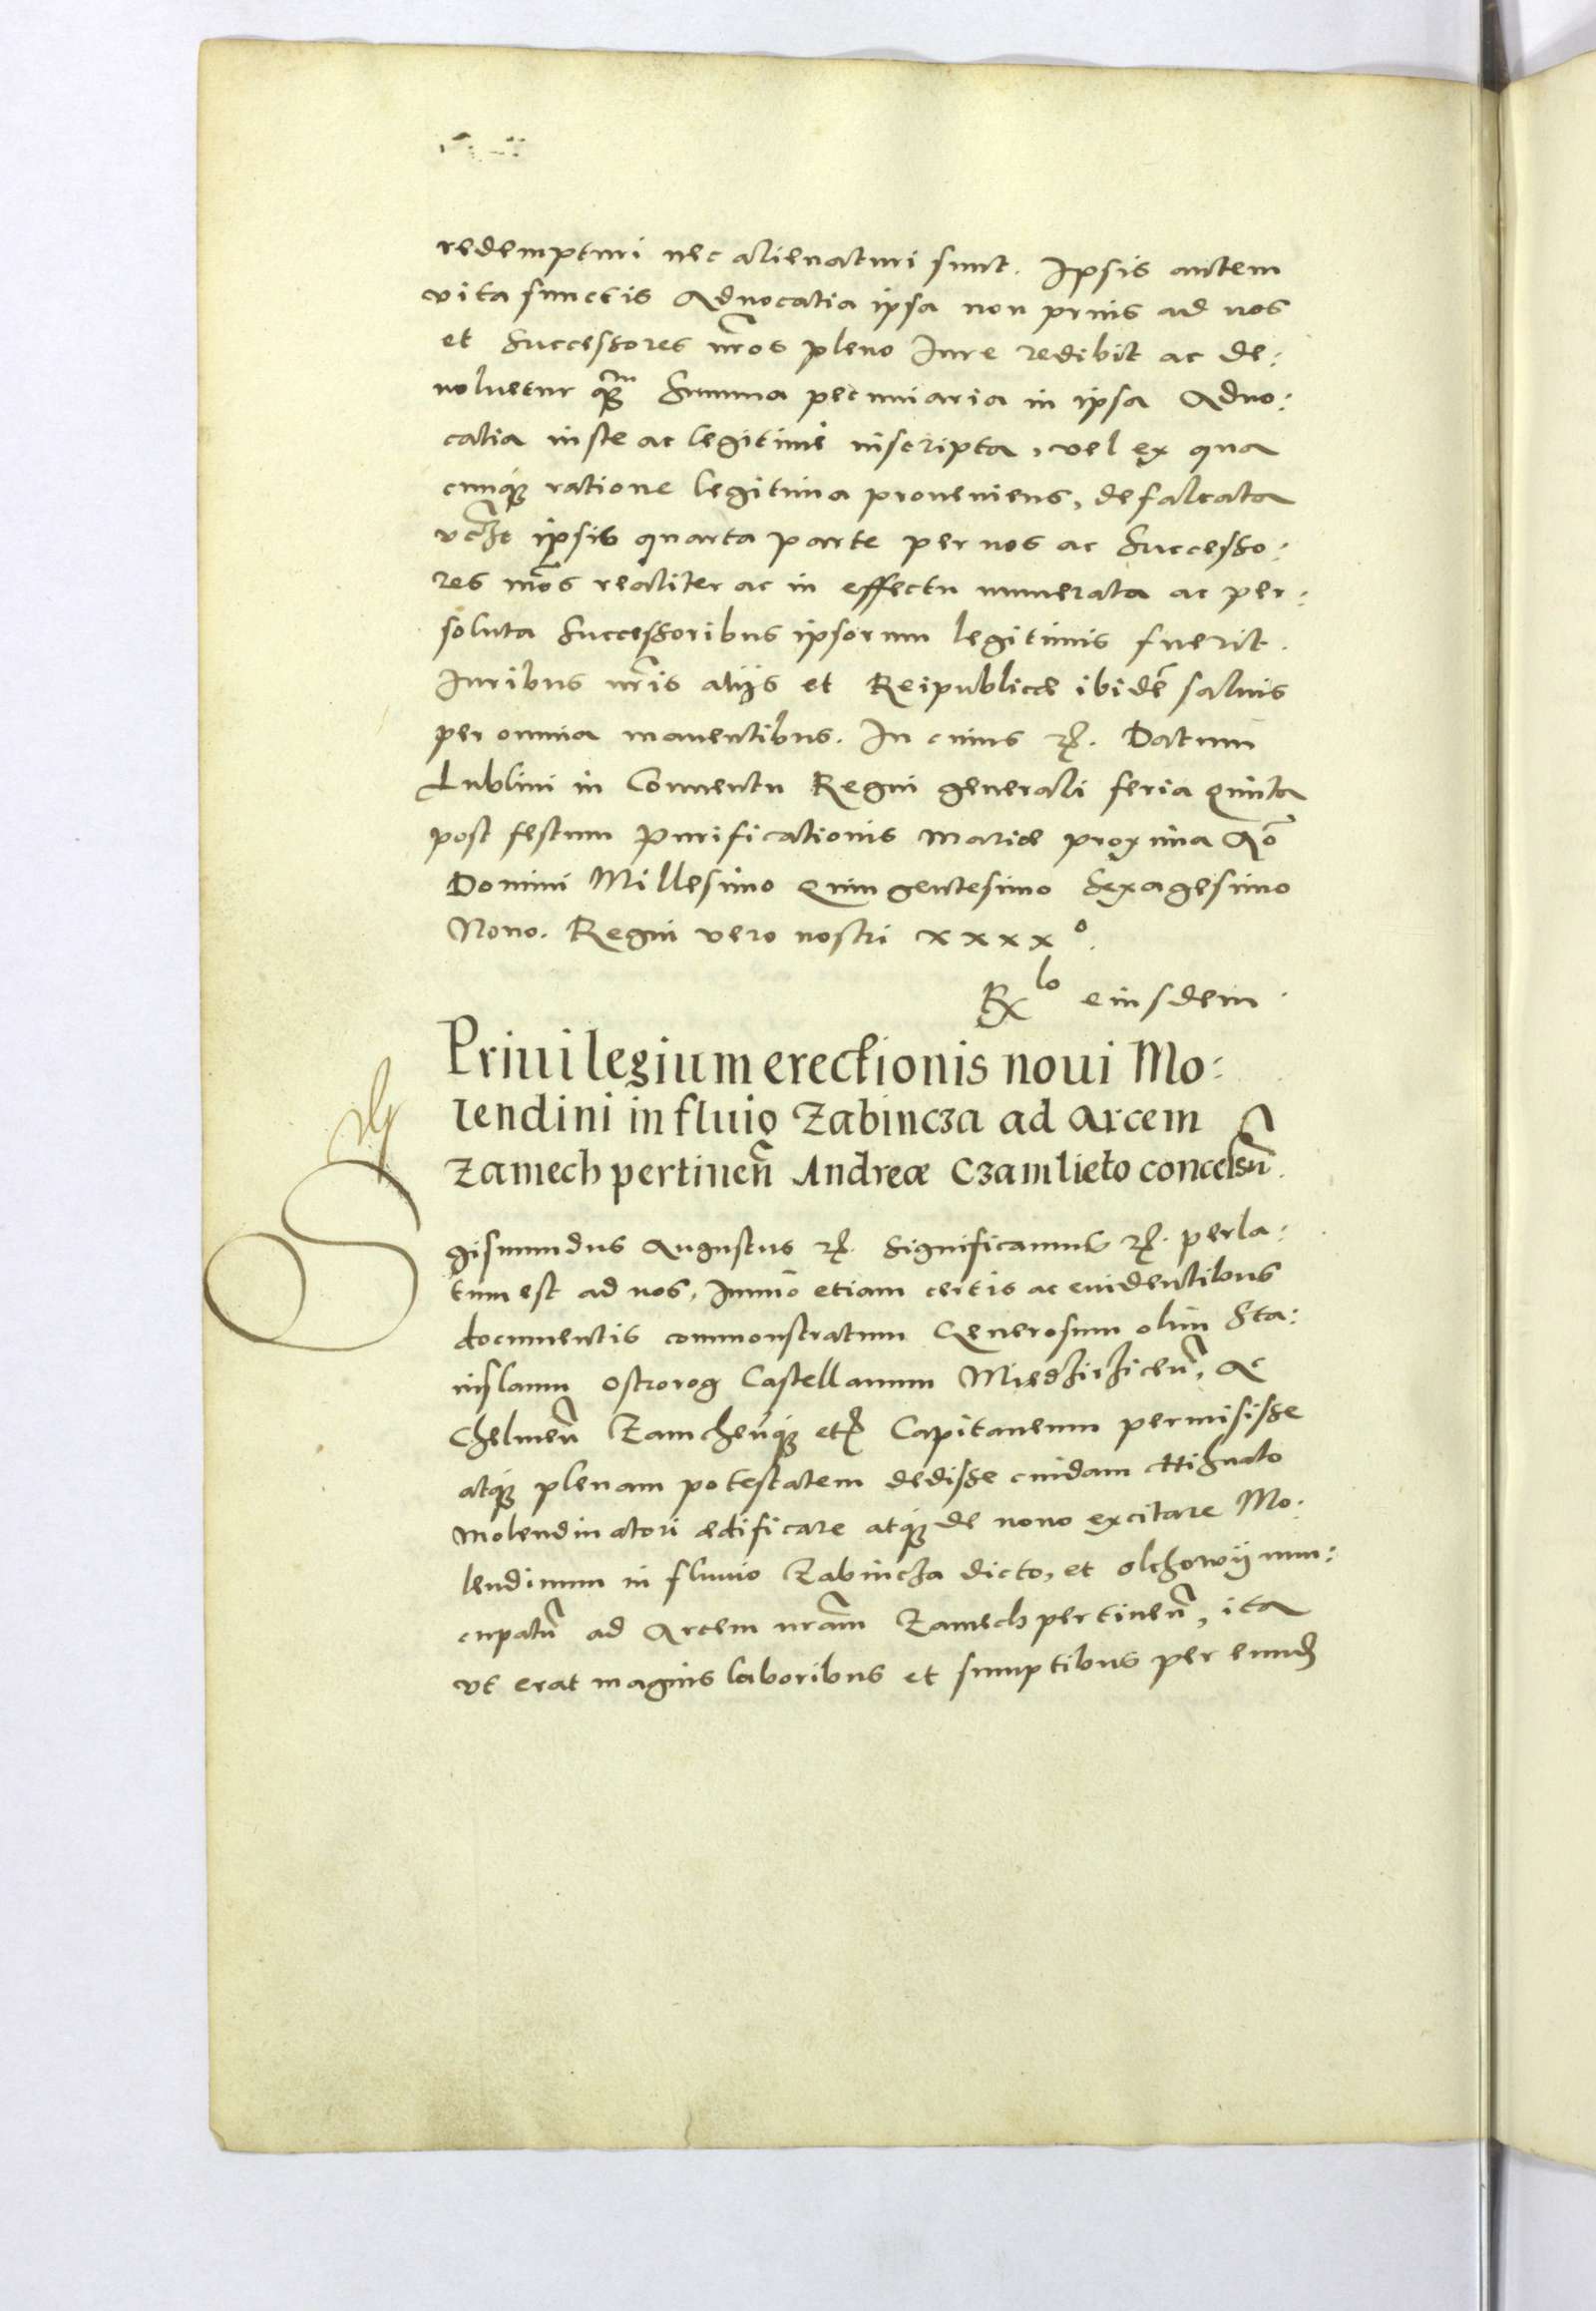 redempturi nec alienaturi sunt. Ipsis autem
vita functis Aduocatia ipsa non prius ad nos
et Successores nr̃os pleno Iure redibit ac de:
uoluetur Summa pecuniaria in ipsa Aduo:
catia iuste ac legitimè inscripta, vel ex qua
cunq; ratione legitima proueniens, defalcata
ipsis quarta parte per nos ac Successo:
res nr̃os realiter ac in effectu numerata ac per:
soluta Successoribus ipsorum legitimis fuerit.
Iuribus nr̃is alijs et Reipublicæ ibidẽ saluis
per omnia manentibus. In cuius Datum
Lublini in Conuentu Regni generali feria Quinta
post festum Purificationis Mariæ proxima Aõ
Domini Millesimo Quingentesimo Sexagesimo
Nono. Regni vero nostri xxxxº.
Rlo eiusdem.
Priuilegium erectionis noui Mo:
lendini in fluio Zabincza ad Arcem
Zamech pertineñ Andreæ Czamlieto concessũ.
gismundus Augustus Significamus perla:
tum est ad nos, Immò etiam certis ac euidentibus
documentis commonstratum Generosum olim Sta:
nislaum Ostrorog Castellanum Miedzirziceñ, Ac
Chelmeñ Zamcheñq; Capitaneum permisisse
atq; plenam potestatem dedisse cuidam
Molendinatori ædificare atq; de nouo excitare Mo:
lendinum in fluuio Zabincza dicto, et Olchowij nun:
cupatũ ad Arcem nr̃am Zamech pertineñ, ita
vt erat magnis laboribus et sumptibus per eund